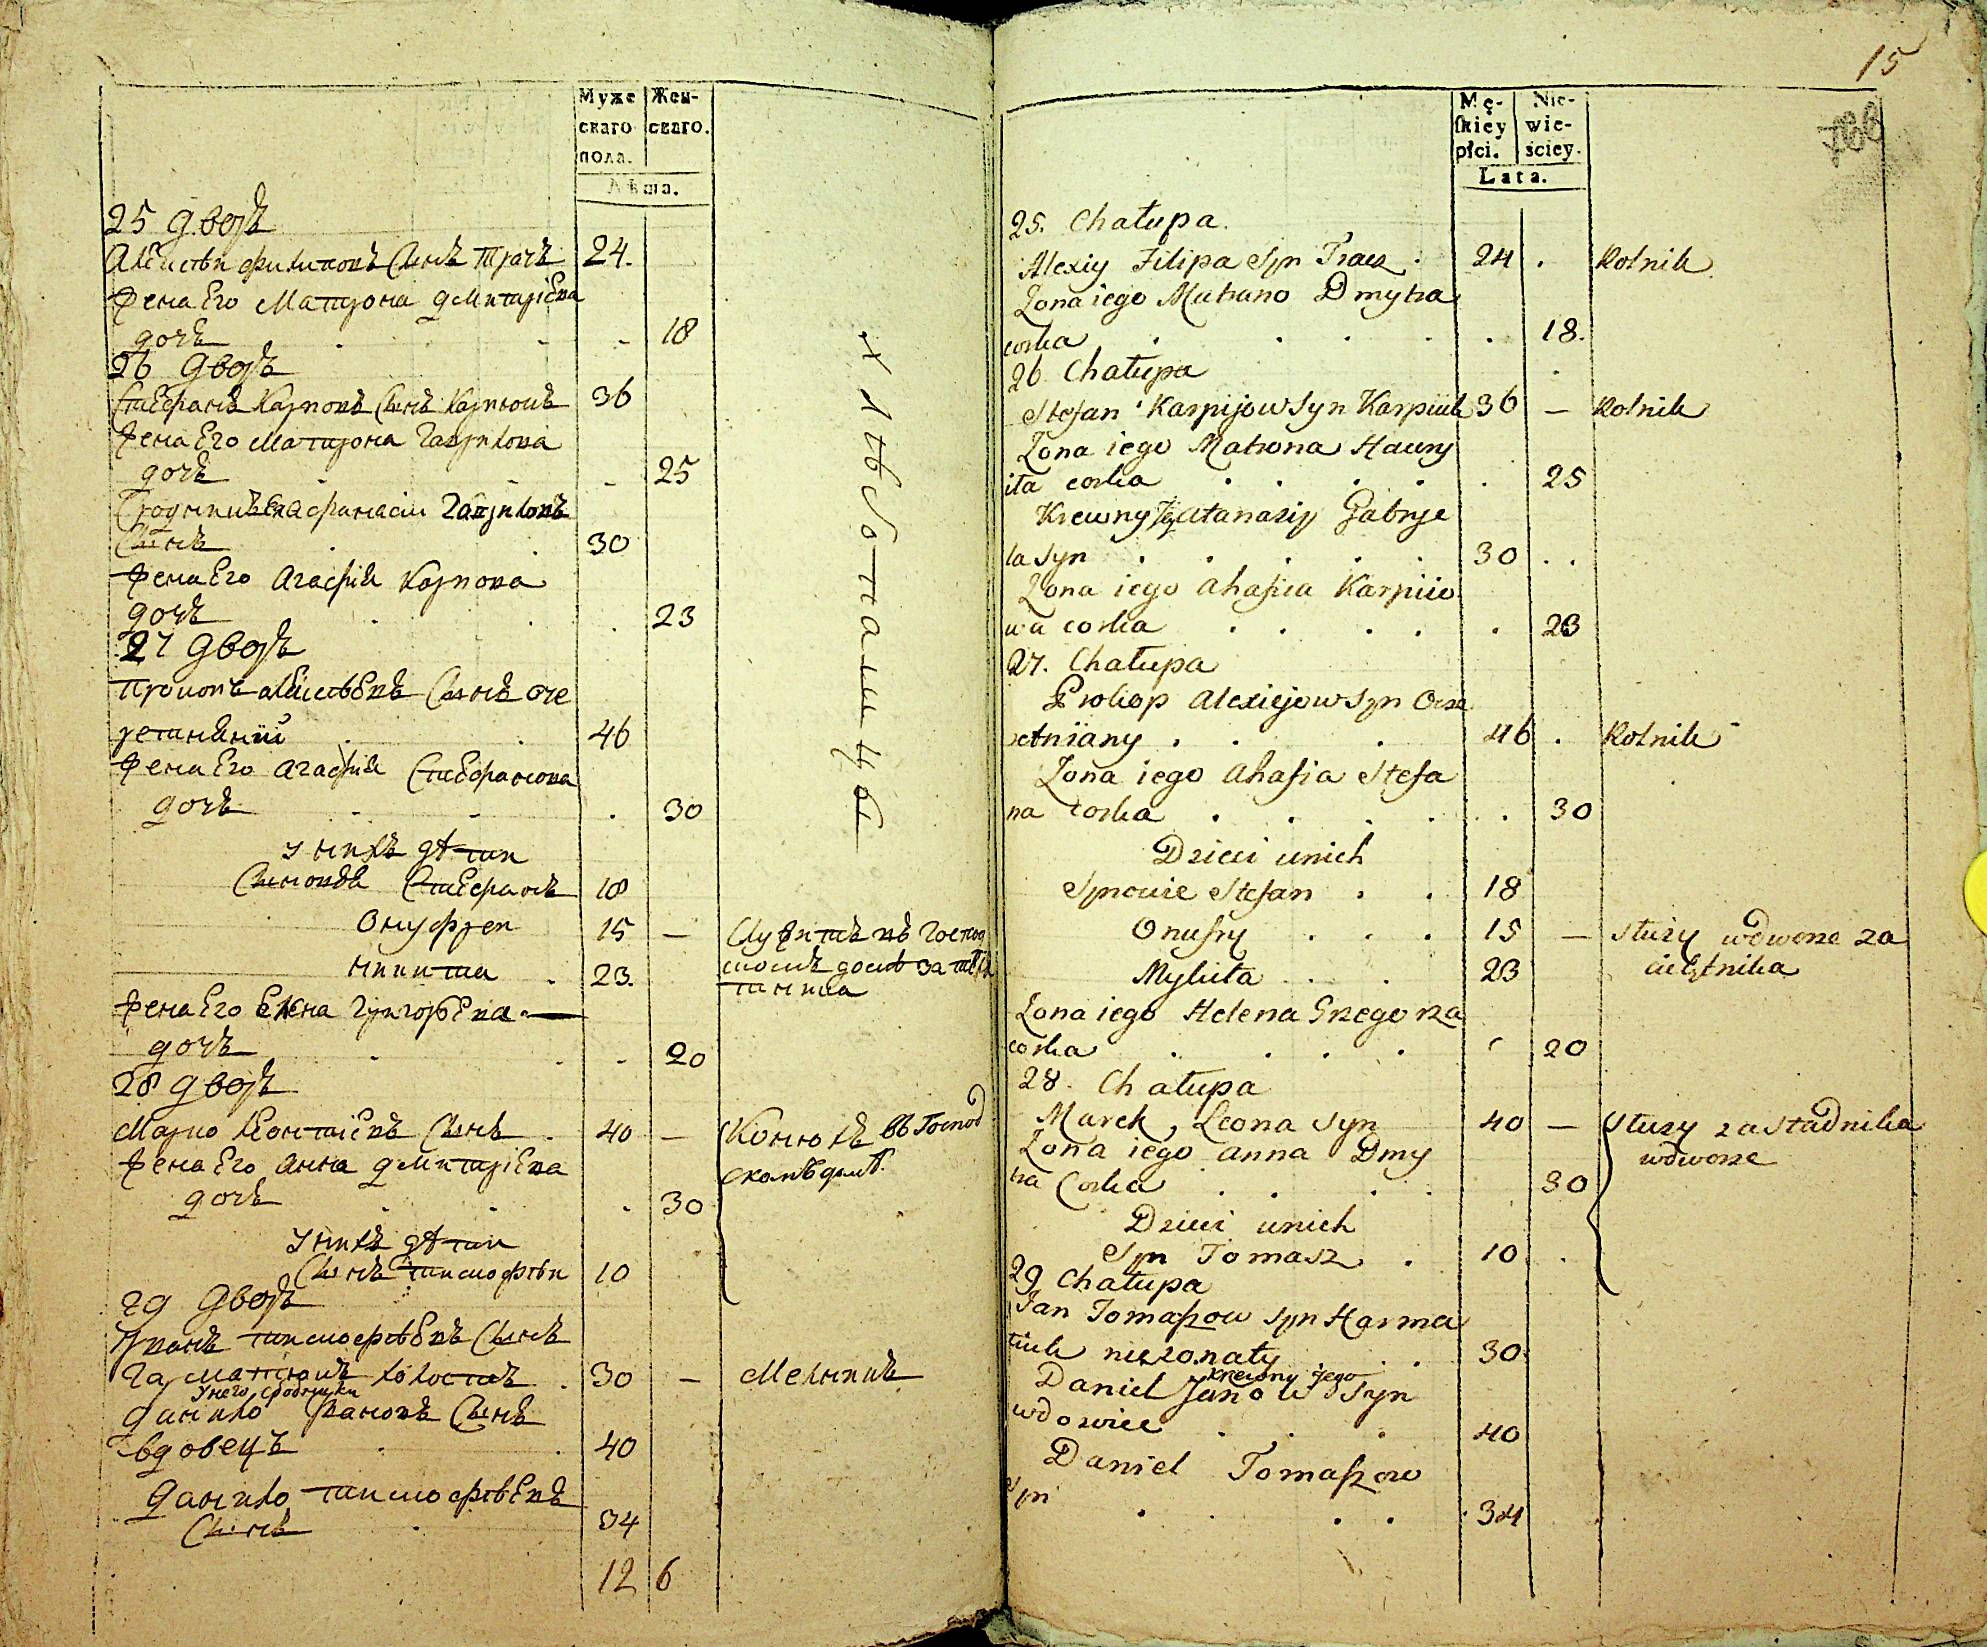 Муже
скаго
пола.
Жен-
скаго.
Лѣта.
25 дворъ
Алексѣй Филиповъ Сынъ Трачъ 24.
жена Его Матрона Дмитріева
дочь 18
26 дворъ
Стефанъ Карповъ Сынъ Карпюкъ 36
жена Его Матрона Гаврилова
дочь 25
Сродникъ Его Афанасій Гавриловъ
Сынъ 30
жена Его Агафія Карпова
дочь 23
27 дворъ
Прокопъ Алексѣевъ Сынъ Оче
ретяняній 46
жена Его Агафія Стефанова
дочь 30
У нихъ дѣти
Сыновья Стефанъ 18
Онуфрей 15 —
Служитъ въ Господ
скомъ домѣ за
Микита 23.
жена Его Елена Григорьева
дочь 20
28 дворъ
Марко Леонтіевъ Сынъ 40 —
Конюхъ въ Господ
скомъ домѣ.
жена Его Анна Дмитріева
дочь 30
У нихъ дѣти
Сынъ Тимофѣй 10
29 дворъ
Иванъ Тимофѣевъ Сынъ
Гарматюкъ холостъ 30 — Мельникъ
У него сродники
Данило Ивановъ Сынъ
вдовецъ 40
Данило Тимофѣевъ
Сынъ 34
12 6
15
Mę-
skiey
płci.
Nie-
wie-
ściey.
Lata.
25. Chałupa.
Alexiy Filipa Syn Tracz 24 . Rolnik
Żona iego Matrono Dmytra
corka 18.
26 Chałupa
Stefan Karpijow Syn Karpiuk 36 — Rolnik
Żona iego Matrona Hawry
iła corka 25
Krewny Jeg Atanaziy Gabrye
la Syn 30 . .
Żona iego Ahafiia Karpiio
wa corka 23
27. Chałupa
Prokop Alexiejow Syn Ocze
retniany 46 . Rolnik
Żona iego Ahafia Stefa
na Corka 30
Dzieci unich
Synowie Stefan 18
Onufry 15 — Służy wdworze za
Mykita 23
Żona iego Helena Grzegorza
corka 20
28. Chałupa
Marek, Leona Syn 40 — Służy za Stadnika
wdworze
Żona iego Anna Dmy
tra Corka 30
Dzieci unich
Syn Tomasz 10 .
29 Chałupa
Jan Tomaszow Syn Harma
tiuk niezonaty 30
krewny jego
Daniel Janow Syn
wdowiec 40
Daniel Tomaszow
Syn 34